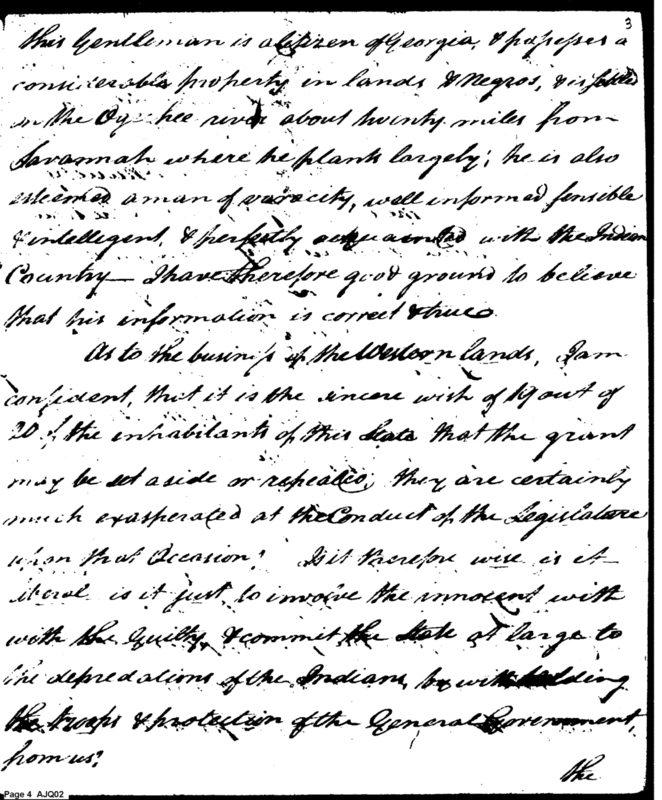 3
this Gentleman is a Citizen of Georgia, & possesses a
considerable property in lands & Negros, & is settled
on the Ogechee river about twenty miles from
Savannah where he plants largely; he is also
esteemed a man of varacity, well informed sensible
& intellegent, & perfectly acquainted with the Indian
Country — I have therefore good ground to believe
that his information is correct & true.
As to the business of the Western lands, I am
confident, that it is the sincere wish of 19 out of
20 of the inhabitants of this State that the grant
may be set aside or repealed; they are certainly
much exasperated at the Conduct of the Legislature
upon that Occasion! Is it therefore wise is it
liberal is it just to involve the innocent with
with the Guilty, & commit the State at large to
the depredations of the Indians, by withholding
the troops & protection of the General Government,
from us?
the
Page 4 AJQ02